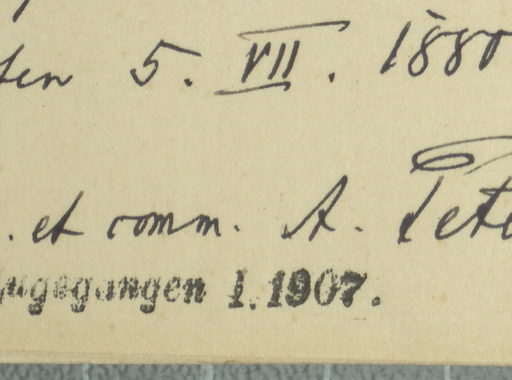 5. VII. 1880
. et comm. A. Pete
ugegangen 1.1907.